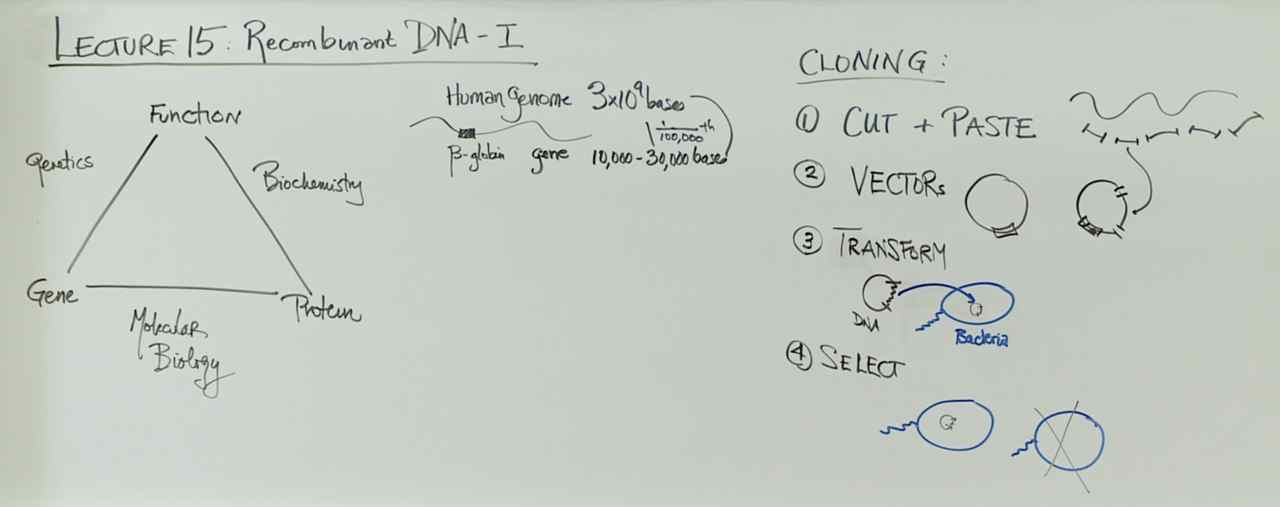 LECTURE 15: Recombinant DNA - I
Function
Genetics
Biochemistry
Gene
Protein
Molecular
Biology
Human Genome 3x10⁹ bases
1/100,000 th
β-globin gene 10,000 - 30,000 bases
CLONING:
① CUT + PASTE
② VECTORs
③ TRANSFORM
DNA
Bacteria
④ SELECT